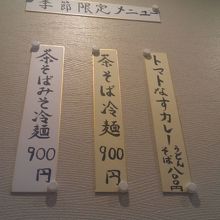 季節限定メニュー
トマトなすカレー
うどん
そば 八〇〇円
茶そば冷麺
900円
茶そばみそ冷麺
900円